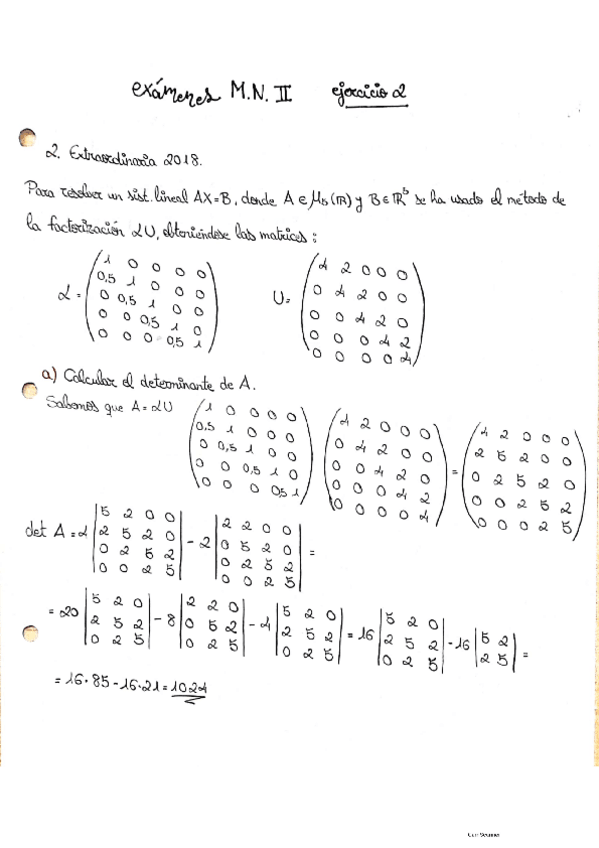 exámenes M.N. II ejercicio 2
2. Extraordinaria 2018.
Para resolver un sist. lineal AX=B, donde A ∈ M₅(ℝ) y B ∈ ℝ⁵ se ha usado el método de
la factorización LU, obteniéndose las matrices:
L = (1 0 0 0 0; 0,5 1 0 0 0; 0 0,5 1 0 0; 0 0 0,5 1 0; 0 0 0 0,5 1) U = (4 2 0 0 0; 0 4 2 0 0; 0 0 4 2 0; 0 0 0 4 2; 0 0 0 0 4)
a) Calcular el determinante de A.
Sabemos que A = LU (1 0 0 0 0; 0,5 1 0 0 0; 0 0,5 1 0 0; 0 0 0,5 1 0; 0 0 0 0,5 1) (4 2 0 0 0; 0 4 2 0 0; 0 0 4 2 0; 0 0 0 4 2; 0 0 0 0 4) = (4 2 0 0 0; 2 5 2 0 0; 0 2 5 2 0; 0 0 2 5 2; 0 0 0 2 5)
det A = 4 |5 2 0 0; 2 5 2 0; 0 2 5 2; 0 0 2 5| - 2 |2 2 0 0; 0 5 2 0; 0 2 5 2; 0 0 2 5| =
= 20 |5 2 0; 2 5 2; 0 2 5| - 8 |2 2 0; 0 5 2; 0 2 5| - 4 |5 2 0; 2 5 2; 0 2 5| = 16 |5 2 0; 2 5 2; 0 2 5| - 16 |5 2; 2 5| =
= 16·85 - 16·21 = 1024